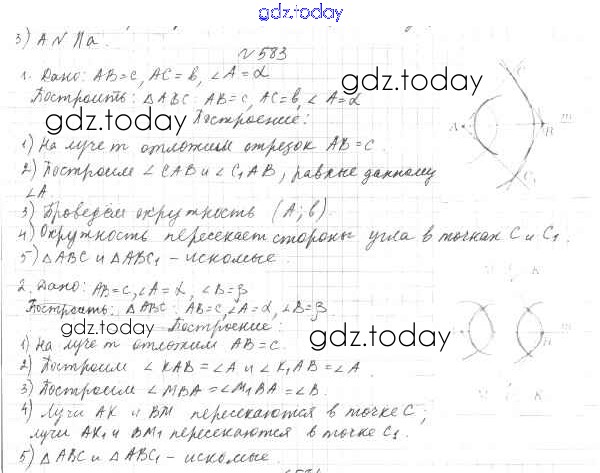 gdz.today
3) AN || a.
№583
1. Дано: AB=c, AC=b, ∠A=α
Построить: △ABC: AB=c, AC=b, ∠A=α
gdz.today
gdz.today
Построение:
1) На луче m отложим отрезок AB=c.
2) Построим ∠CAB и ∠C₁AB, равные данному
∠A.
3) Проведём окружность (A; b).
4) Окружность пересекает стороны угла в точках C и C₁.
5) △ABC и △ABC₁ - искомые.
A
C
B
m
C₁
2. Дано: AB=c, ∠A=α, ∠B=β
Построить: △ABC: AB=c, ∠A=α, ∠B=β
gdz.today
gdz.today
Построение:
1) На луче m отложим AB=c.
2) Построим ∠KAB=∠A и ∠K₁AB=∠A
3) Построим ∠MBA=∠M₁BA=∠B.
4) Лучи AK и BM пересекаются в точке C;
лучи AK₁ и BM₁ пересекаются в точке C₁.
5) △ABC и △ABC₁ - искомые.
M
K
m